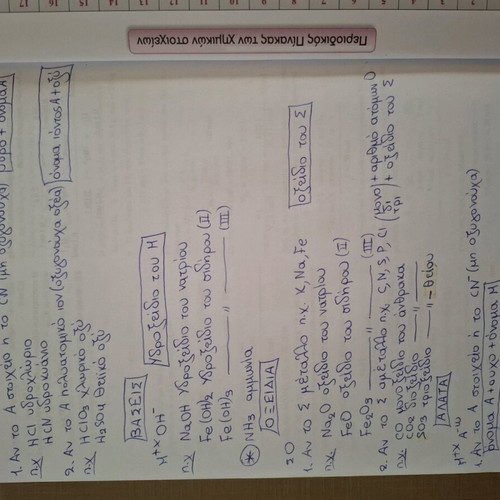 1. Αν το Α στοιχείο ή το CN (μη οξυγονούχα) υδρο + όνομα Α
π.χ. HCl υδροχλώριο
HCN υδροκυάνιο
2. Αν το Α πολυατομικό ιόν (οξυγονούχα οξέα) όνομα ιόντος Α + οξύ
π.χ. HClO3 χλωρικό οξύ
H2SO4 θειικό οξύ
ΒΑΣΕΙΣ
Η+x ΟΗ- Υδροξείδιο του Μ
π.χ. NaOH υδροξείδιο του νατρίου
Fe(OH)2 υδροξείδιο του σιδήρου (II)
Fe(OH)3 —〃— (III)
* NH3 αμμωνία
ΟΞΕΙΔΙΑ
Σ Ο
1. Αν το Σ μέταλλο π.χ. K, Na, Fe οξείδιο του Σ
π.χ. Na2O οξείδιο του νατρίου
FeO οξείδιο του σιδήρου (II)
Fe2O3 —〃— (III)
2. Αν το Σ αμέταλλο π.χ. C, N, S, P, Cl (μονο δι τρι) + αριθμό ατόμων Ο + οξείδιο του Σ
π.χ. CO μονοξείδιο του άνθρακα
CO2 διοξείδιο —〃—
SO3 τριοξείδιο —〃— θείου
ΑΛΑΤΑ
Η+x Α-ψ
1. Αν το Α στοιχείο ή το CN (μη οξυγονούχα)
όνομα Α + ούχο + όνομα Μ
Περιοδικός Πίνακας των χημικών στοιχείων